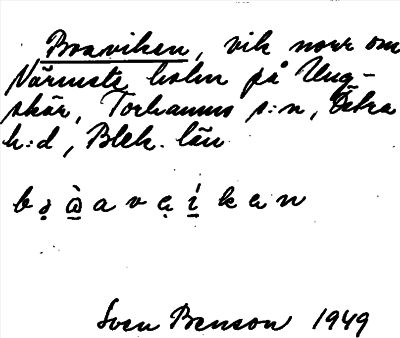 Boaviken, vik norr om
Närmsta holm på Ung-
skär, Torhamns s:n, Östra
h:d, Blek. län
bo̤ὼ̱avạí̱kɐn
Sven Benson 1949